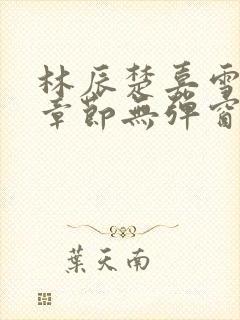 林辰楚嘉雪
章節無彈窗
葉天南